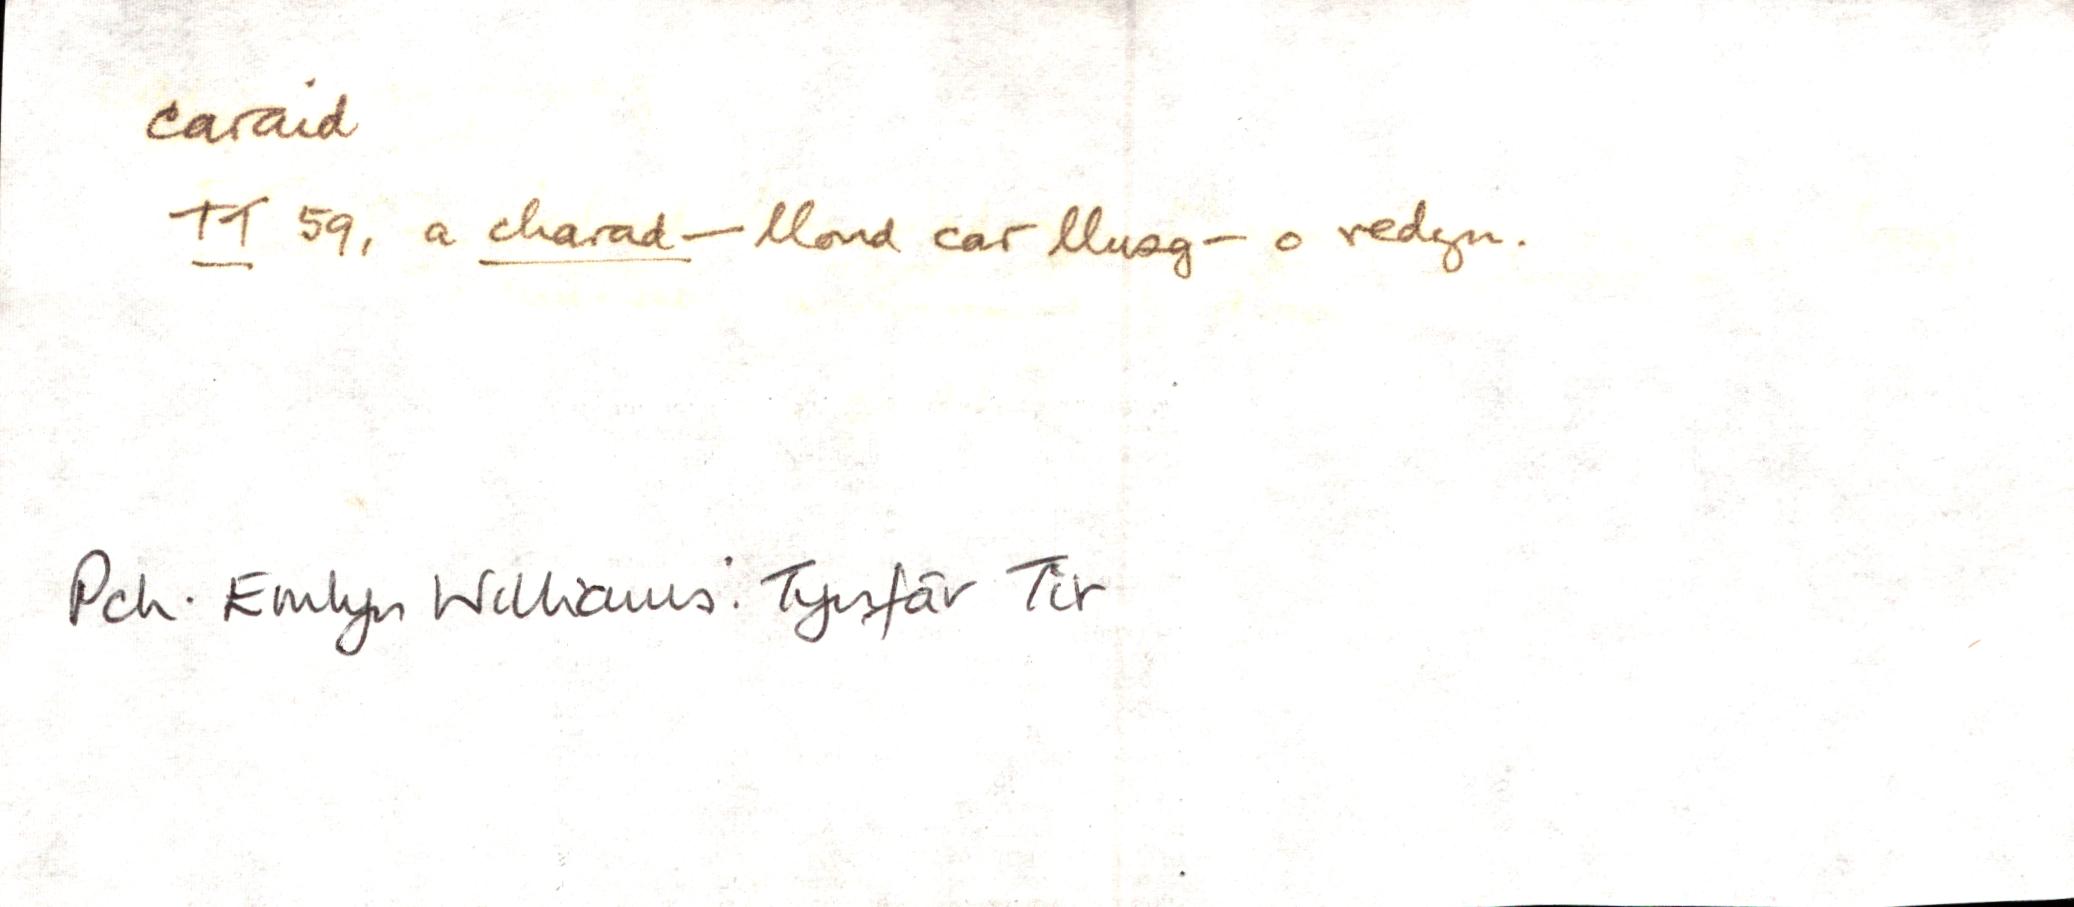 caraid
TT 59, a charad — llond car llusg — o redyn.
Pch. Emlyn Williams: Tynfâr Tir